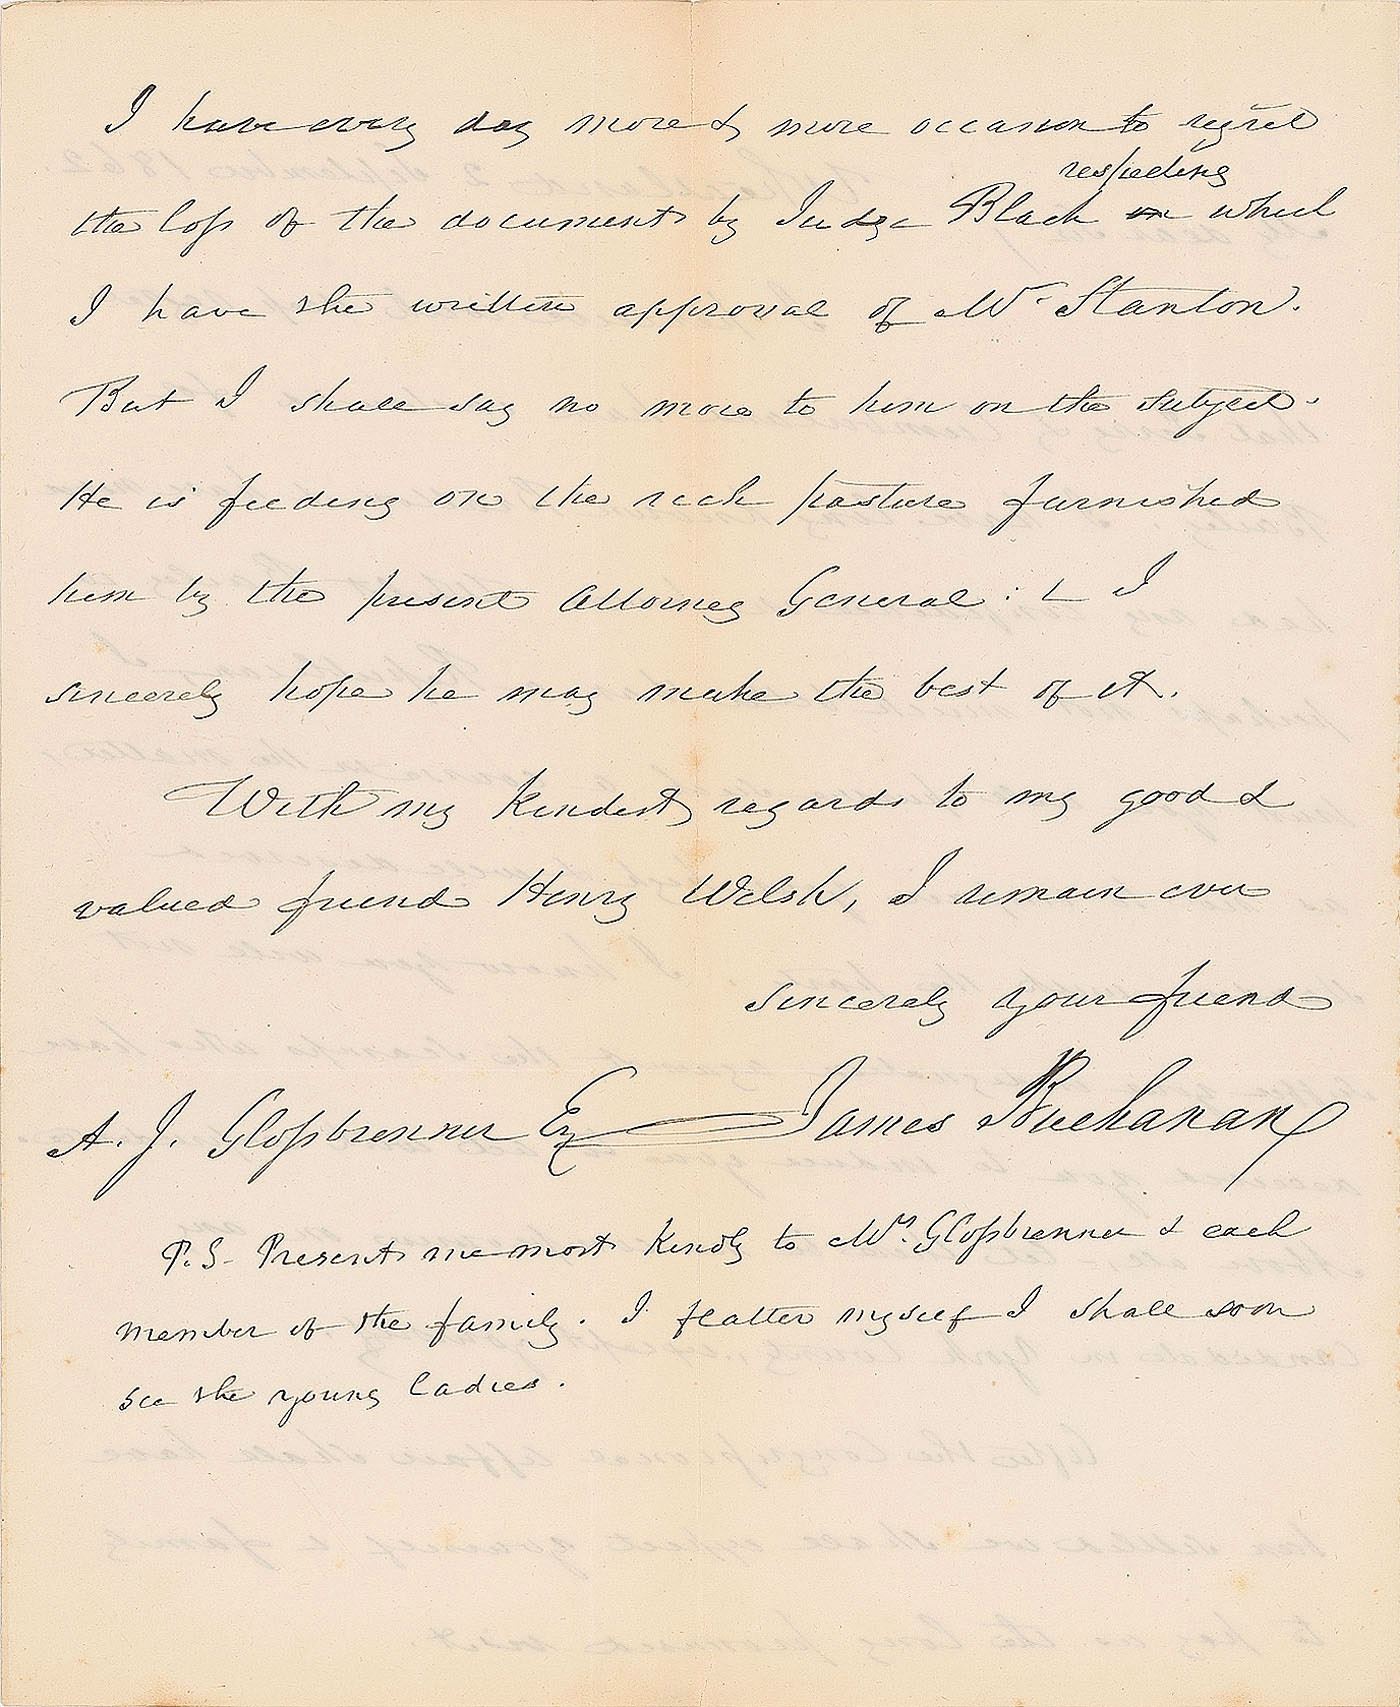 I have every day more & more occasion to regret
respecting
the loss of the documents by Judge Black on which
I have the written approval of Mr. Stanton.
But I shall say no more to him on the subject.
He is feeding on the rich pasture furnished
him by the present Attorney General: & I
sincerely hope he may make the best of it.
With my kindest regards to my good &
valued friend Henry Welsh, I remain ever
sincerely your friend
A. J. Glossbrenner Esq James Buchanan
P.S. Present me most kindly to Mrs. Glossbrenner & each
member of the family. I flatter myself I shall soon
see the young ladies.